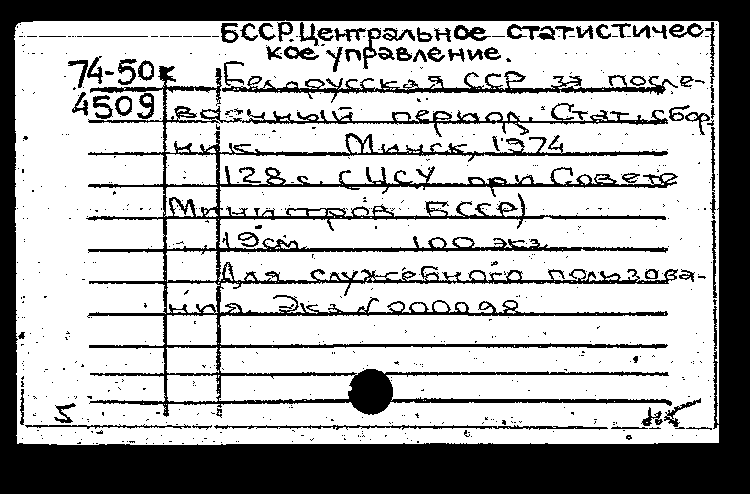 БССР. Центральное статистичес-
кое управление.
74-50к
4509
Белорусская ССР за после-
военный период. Стат. сбор-
ник. Минск, 1974
128 с. (ЦСУ при Совете
Министров БССР)
19см 100 экз.
Для служебного пользова-
ния. Экз №000098